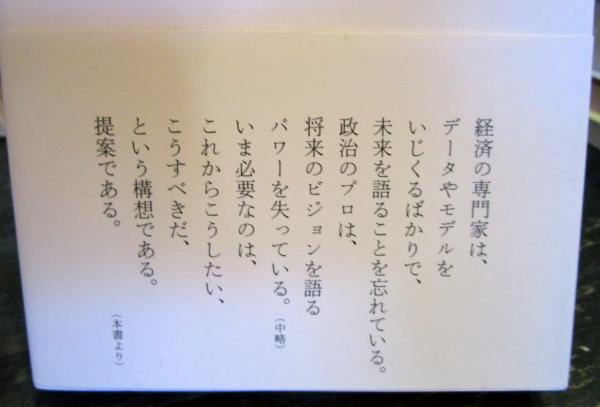 経済の専門家は、
データやモデルを
いじくるばかりで、
未来を語ることを忘れている。
政治のプロは、
将来のビジョンを語る
パワーを失っている。(中略)
いま必要なのは、
これからこうしたい、
こうすべきだ、
という構想である。
提案である。
(本書より)